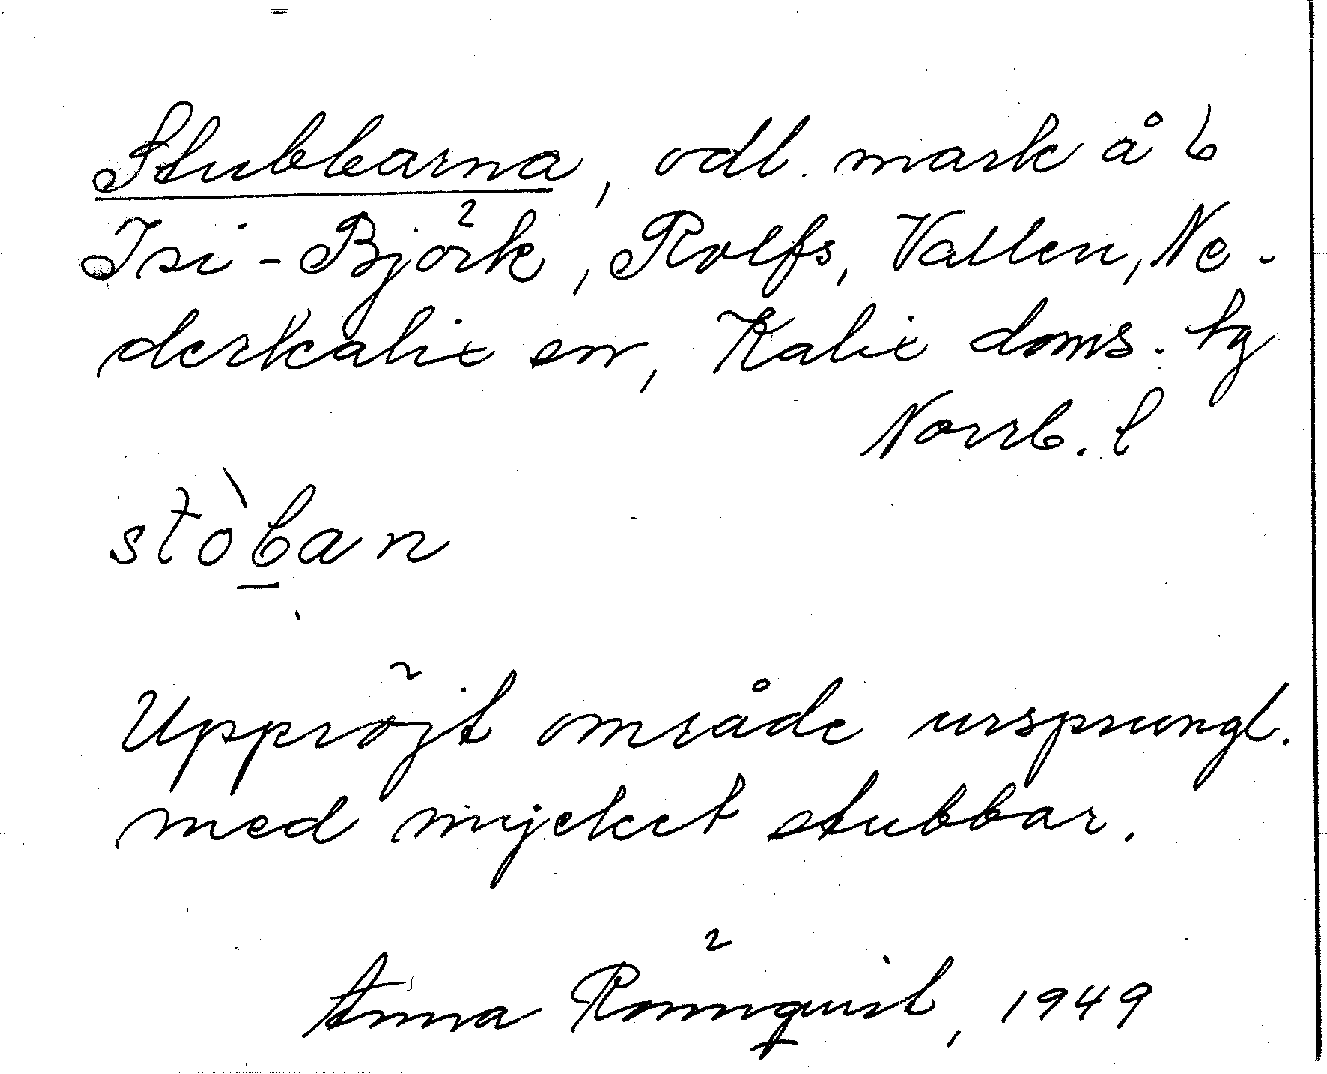 Stubbarna, odl. mark å b
Isi-Björk, Rolfs, Vallen, Ne-
derkalix sn, Kalix doms. tg
Norrb. l
stòban
Uppröjt område ursprungl.
med mycket stubbar.
Anna Rönnquist, 1949